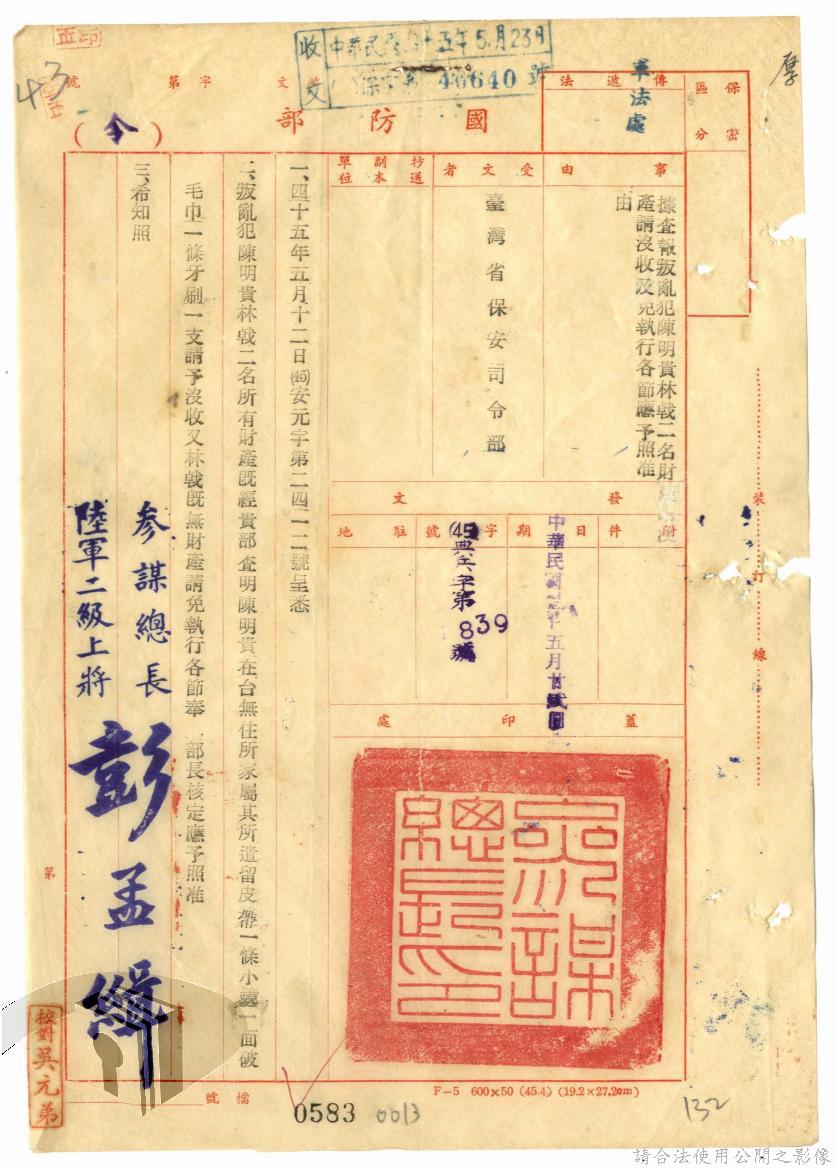 收文
中華民國四十五年5月23日
46640號
軍法處
傳遞法
保密區分
國防部
(令)
文
字
第
號
事由
據查報叛亂犯陳明貴林戟二名財
產請沒收及免執行各節應予照准
由
受文者
臺灣省保安司令部
抄送副本單位
發文
附件
日期
中華民國 五月廿貳日
字號
(45)典兵字第
839號
駐地
蓋印處
參謀總長印
一、四十五年五月十二日(45)安元字第二四一二號呈悉
二、叛亂犯陳明貴林戟二名所有財產既經貴部查明陳明貴在台無住所家屬其所遺留皮帶一條小鏡一面破
毛巾一條牙刷一支請予沒收又林戟既無財產請免執行各節奉 部長核定應予照准
三、希知照
參謀總長
陸軍二級上將
彭孟緝
裝訂線
第
校對吳元弟
檔號
0583
0013
F-5 600×50 (45.4) (19.2×27.2cm)
132
請合法使用公開之影像